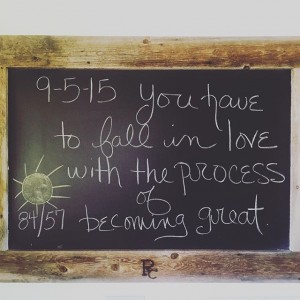 9-5-15 You have
to fall in love
with the PROCESS
of
84/57 becoming great.